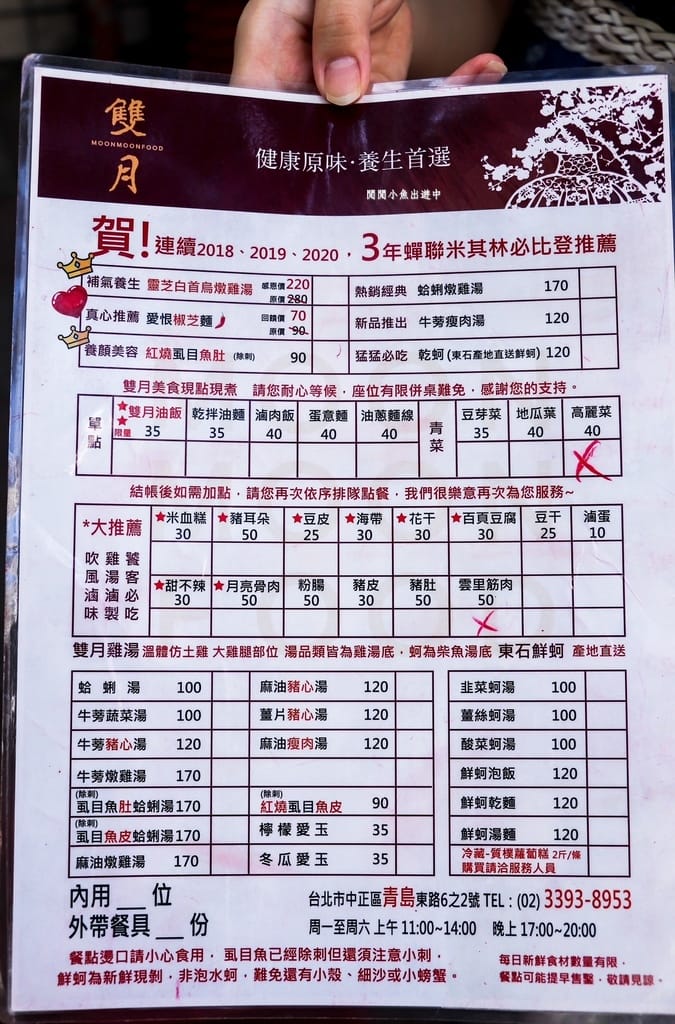 雙月
MOONMOONFOOD
健康原味·養生首選
閒閒小魚出遊中
賀!連續2018、2019、2020,3年蟬聯米其林必比登推薦
補氣養生 靈芝白首烏燉雞湯 感恩價220 原價280
熱銷經典 蛤蜊燉雞湯 170
真心推薦 愛恨椒芝麵 回饋價 70 原價 90
新品推出 牛蒡瘦肉湯 120
養顏美容 紅燒虱目魚肚 (除刺) 90
猛猛必吃 乾蚵 (東石產地直送鮮蚵) 120
雙月美食現點現煮 請您耐心等候,座位有限併桌難免,感謝您的支持。
單點 ★★限量 雙月油飯 35 乾拌油麵 35 滷肉飯 40 蛋意麵 40 油蔥麵線 40
青菜 豆芽菜 35 地瓜葉 40 高麗菜 40
結帳後如需加點,請您再次依序排隊點餐,我們很樂意再次為您服務~
*大推薦
吹風滷味 雞湯滷製 饕客必吃
★米血糕 30 ★豬耳朵 50 ★豆皮 25 ★海帶 30 ★花干 30 ★百頁豆腐 30 豆干 25 滷蛋 10
★甜不辣 30 ★月亮骨肉 50 粉腸 50 豬皮 30 豬肚 50 雲里筋肉 50
雙月雞湯 溫體仿土雞 大雞腿部位 湯品類皆為雞湯底,蚵為柴魚湯底 東石鮮蚵 產地直送
蛤蜊湯 100
牛蒡蔬菜湯 100
牛蒡豬心湯 120
牛蒡燉雞湯 170
(除刺) 虱目魚肚蛤蜊湯170
(除刺) 虱目魚皮蛤蜊湯170
麻油燉雞湯 170
麻油豬心湯 120
薑片豬心湯 120
麻油瘦肉湯 120
(除刺) 紅燒虱目魚皮 90
檸檬愛玉 35
冬瓜愛玉 35
韭菜蚵湯 100
薑絲蚵湯 100
酸菜蚵湯 100
鮮蚵泡飯 120
鮮蚵乾麵 120
鮮蚵湯麵 120
冷藏-質樸蘿蔔糕 2斤/條
購買請洽服務人員
內用___位
外帶餐具___份
台北市中正區青島東路6之2號 TEL:(02) 3393-8953
周一至周六 上午 11:00~14:00 晚上 17:00~20:00
餐點燙口請小心食用, 虱目魚已經除刺但還須注意小刺,
鮮蚵為新鮮現剝,非泡水蚵,難免還有小殼、細沙或小螃蟹。
每日新鮮食材數量有限,
餐點可能提早售罄,敬請見諒。